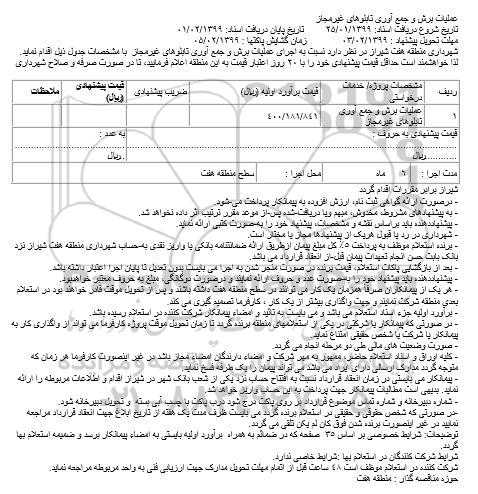 عملیات برش و جمع آوری تابلوهای غیرمجاز
تاریخ شروع دریافت اسناد: ۲۵/۰۱/۱۳۹۹ تاریخ پایان دریافت اسناد: ۰۱/۰۲/۱۳۹۹
مهلت تحویل پیشنهاد : ۰۳/۰۲/۱۳۹۹ زمان گشایش پاکتها : ۰۵/۰۲/۱۳۹۹
شهرداری منطقه هفت شیراز در نظر دارد نسبت به اجرای عملیات برش و جمع آوری تابلوهای غیرمجاز با مشخصات جدول ذیل اقدام نماید.
لذا خواهشمند است حداقل قیمت پیشنهادی خود را با ۲۰ روز اعتبار قیمت به این منطقه اعلام فرمایید، تا در صورت صرفه و صلاح شهرداری
ردیف مشخصات پروژه/ خدمات درخواستی قیمت برآورد اولیه (ریال) ضریب پیشنهادی قیمت پیشنهادی (ریال) ملاحظات
۱ عملیات برش و جمع آوری تابلوهای غیرمجاز ۴۰۰/۱۸۱/۸۴۱
قیمت پیشنهادی به حروف : به عدد :
............ریال ..ریال
مدت اجرا : ۶ ماه محل اجرا : سطح منطقه هفت
شیراز برابر مقررات اقدام گردد
- درصورت ارائه گواهی ثبت نام، ارزش افزوده به پیمانکار پرداخت می‌شود.
- به پیشنهادهای مشروط، مخدوش، مبهم ویا دریافت‌شده پس‌از موعد مقرر ترتیب اثر داده نخواهد شد.
- پیشنهاددهنده باید براساس نقشه و مشخصات، پیشنهاد خود را به‌صورت کتبی ارائه نماید.
- شهرداری در رد یا قبول هریک از پیشنهادها مجاز یا مختار است.
- برنده استعلام موظف به پرداخت ۵٪ کل مبلغ پیمان ازطریق ارائه ضمانتنامه بانکی یا واریز نقدی به‌حساب شهرداری منطقه هفت شیراز نزد
بانک بابت حسن انجام تعهدات پیمان قبل‌از انعقاد قرارداد می باشد
- بعد از بازگشایی پاکات استعلام، قیمت برنده در صورت منجر شدن به اجرا می بایست بدون تعدیل تا پایان اجرا اعتبار داشته باشد.
- پیشنهاددهنده باید پیشنهاد خود را به‌صورت عدد و حروف ارائه نمایند و درصورت دوگانگی، مبلغ به حروف معتبر خواهدبود.
- هر یک از پیمانکاران صرفا همزمان یک کار می توانند در سطح منطقه هفت داشته باشند و پس از تحویل موقت قادر خواهند بود در استعلام
بعدی منطقه شرکت نمایند و جهت واگذاری بیشتر از یک کار ، کارفرما تصمیم گیری می کند.
- برآورد اولیه جزء اسناد استعلام می باشد و می بایست به تائید و امضاء پیمانکار شرکت کننده در استعلام رسیده باشد.
- در صورتی که پیمانکار یا شرکتی در یکی از استعلامهای منطقه برنده گردید تا زمان تحویل موقت پروژه کارفرما می تواند از واگذاری کار به
پیمانکار یا شرکت یا شخص حقیقی امتناع نماید.
- صورت وضعیت های مالی طی دو مرحله انجام می گردد.
- کلیه اوراق و اسناد استعلام حاضر، ممهور به مهر شرکت و امضاء دارندگان امضاء مجاز باشد در غیر اینصورت کارفرما هر زمان که
متوجه گردد مدارک ارسالی دارای ایراد می باشد می تواند پیمان را یک طرفه فسخ نماید.
- پیمانکار می بایستی در زمان انعقاد قرارداد نسبت به افتتاح حساب نزد یکی از شعب بانک شهر در شیراز اقدام و اطلاعات مربوطه را ارائه
نماید. بدیهی است مطالبات پیمانکار جهت پرداخت به این حساب واریز خواهد شد.
- شماره دبیرخانه و شماره تماس موضوع قرارداد بر روی پاکت درج شود درب پاکت با چسب آبی بسته و تحویل دبیرخانه شود.
-در صورتی که شخص حقوقی و حقیقی در استعلام برنده گردد می بایست ظرف مدت یک هفته از تاریخ ابلاغ جهت انعقاد قرارداد مراجعه
نمایید در غیر اینصورت برنده شدن فوق کان لم یکن تلقی می گردد.
توضیحات: شرایط خصوصی بر اساس ۳۵ صفحه که در ضمائم به همراه برآورد اولیه بایستی به امضاء پیمانکار برسد و ضمیمه استعلام بها
گردد.
شرایط شرکت کنندگان در استعلام بها :شرایط خاصی ندارد.
شرکت کننده در استعلام موظف است ۴۸ ساعت قبل از اتمام مهلت تحویل مدارک جهت ارزیابی فنی به واحد مربوطه مراجعه نماید.
حوزه مناقصه گذار : منطقه هفت